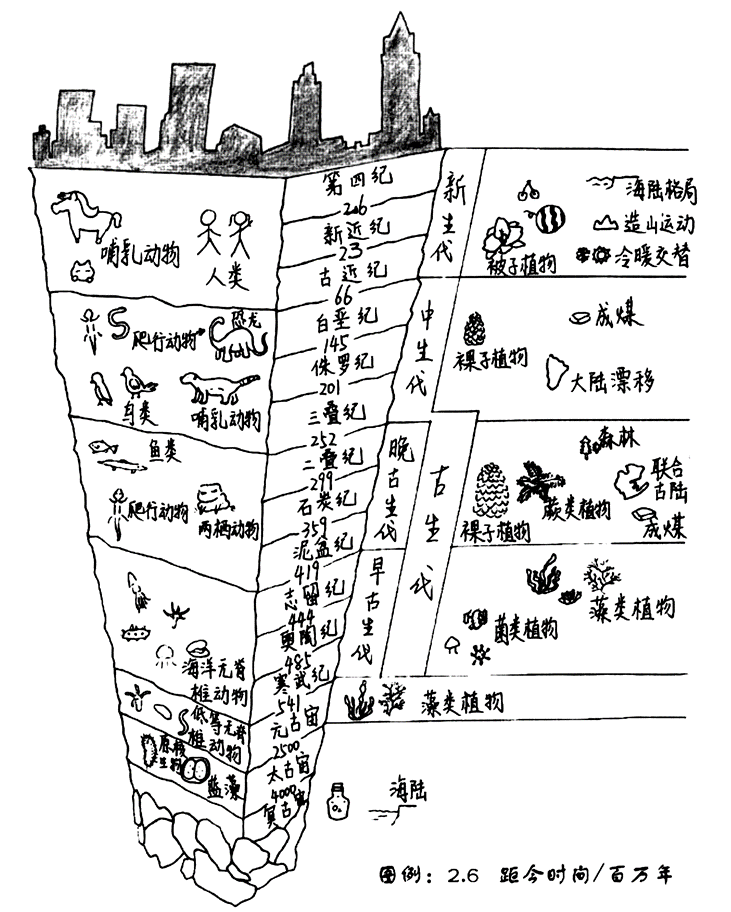 第四纪
2.6
新近纪
23
古近纪
66
白垩纪
145
侏罗纪
201
三叠纪
252
二叠纪
299
石炭纪
359
泥盆纪
419
志留纪
444
奥陶纪
485
寒武纪
541
元古宙
2500
太古宙
4000
冥古宙
哺乳动物
人类
爬行动物
恐龙
鸟类
哺乳动物
鱼类
爬行动物
两栖动物
海洋无脊
椎动物
低等无脊
椎动物
原核
生物
蓝藻
新生代
中生代
晚古生代
早古生代
古生代
被子植物
海陆格局
造山运动
冷暖交替
裸子植物
成煤
大陆漂移
裸子植物
蕨类植物
森林
联合
古陆
成煤
菌类植物
藻类植物
藻类植物
O₂
海陆
图例：2.6 距今时间/百万年